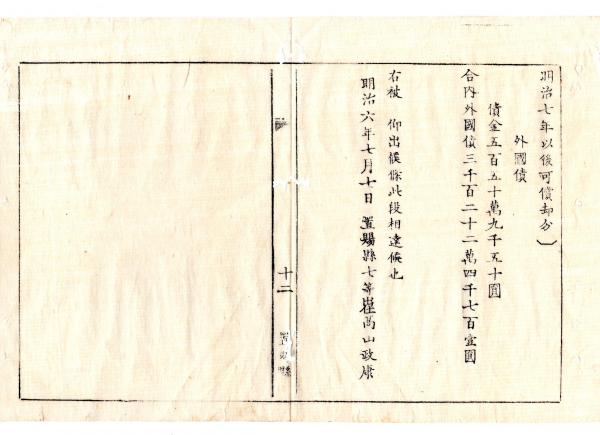 明治七年以後可償却分﹈
外國債
債金五百五十萬九千五十圓
合内外國債三千百二十二萬四千七百壹圓
右被 仰出候條此段相達候也
明治六年七月七日 置賜縣七等出仕髙山政康
十二
置賜縣